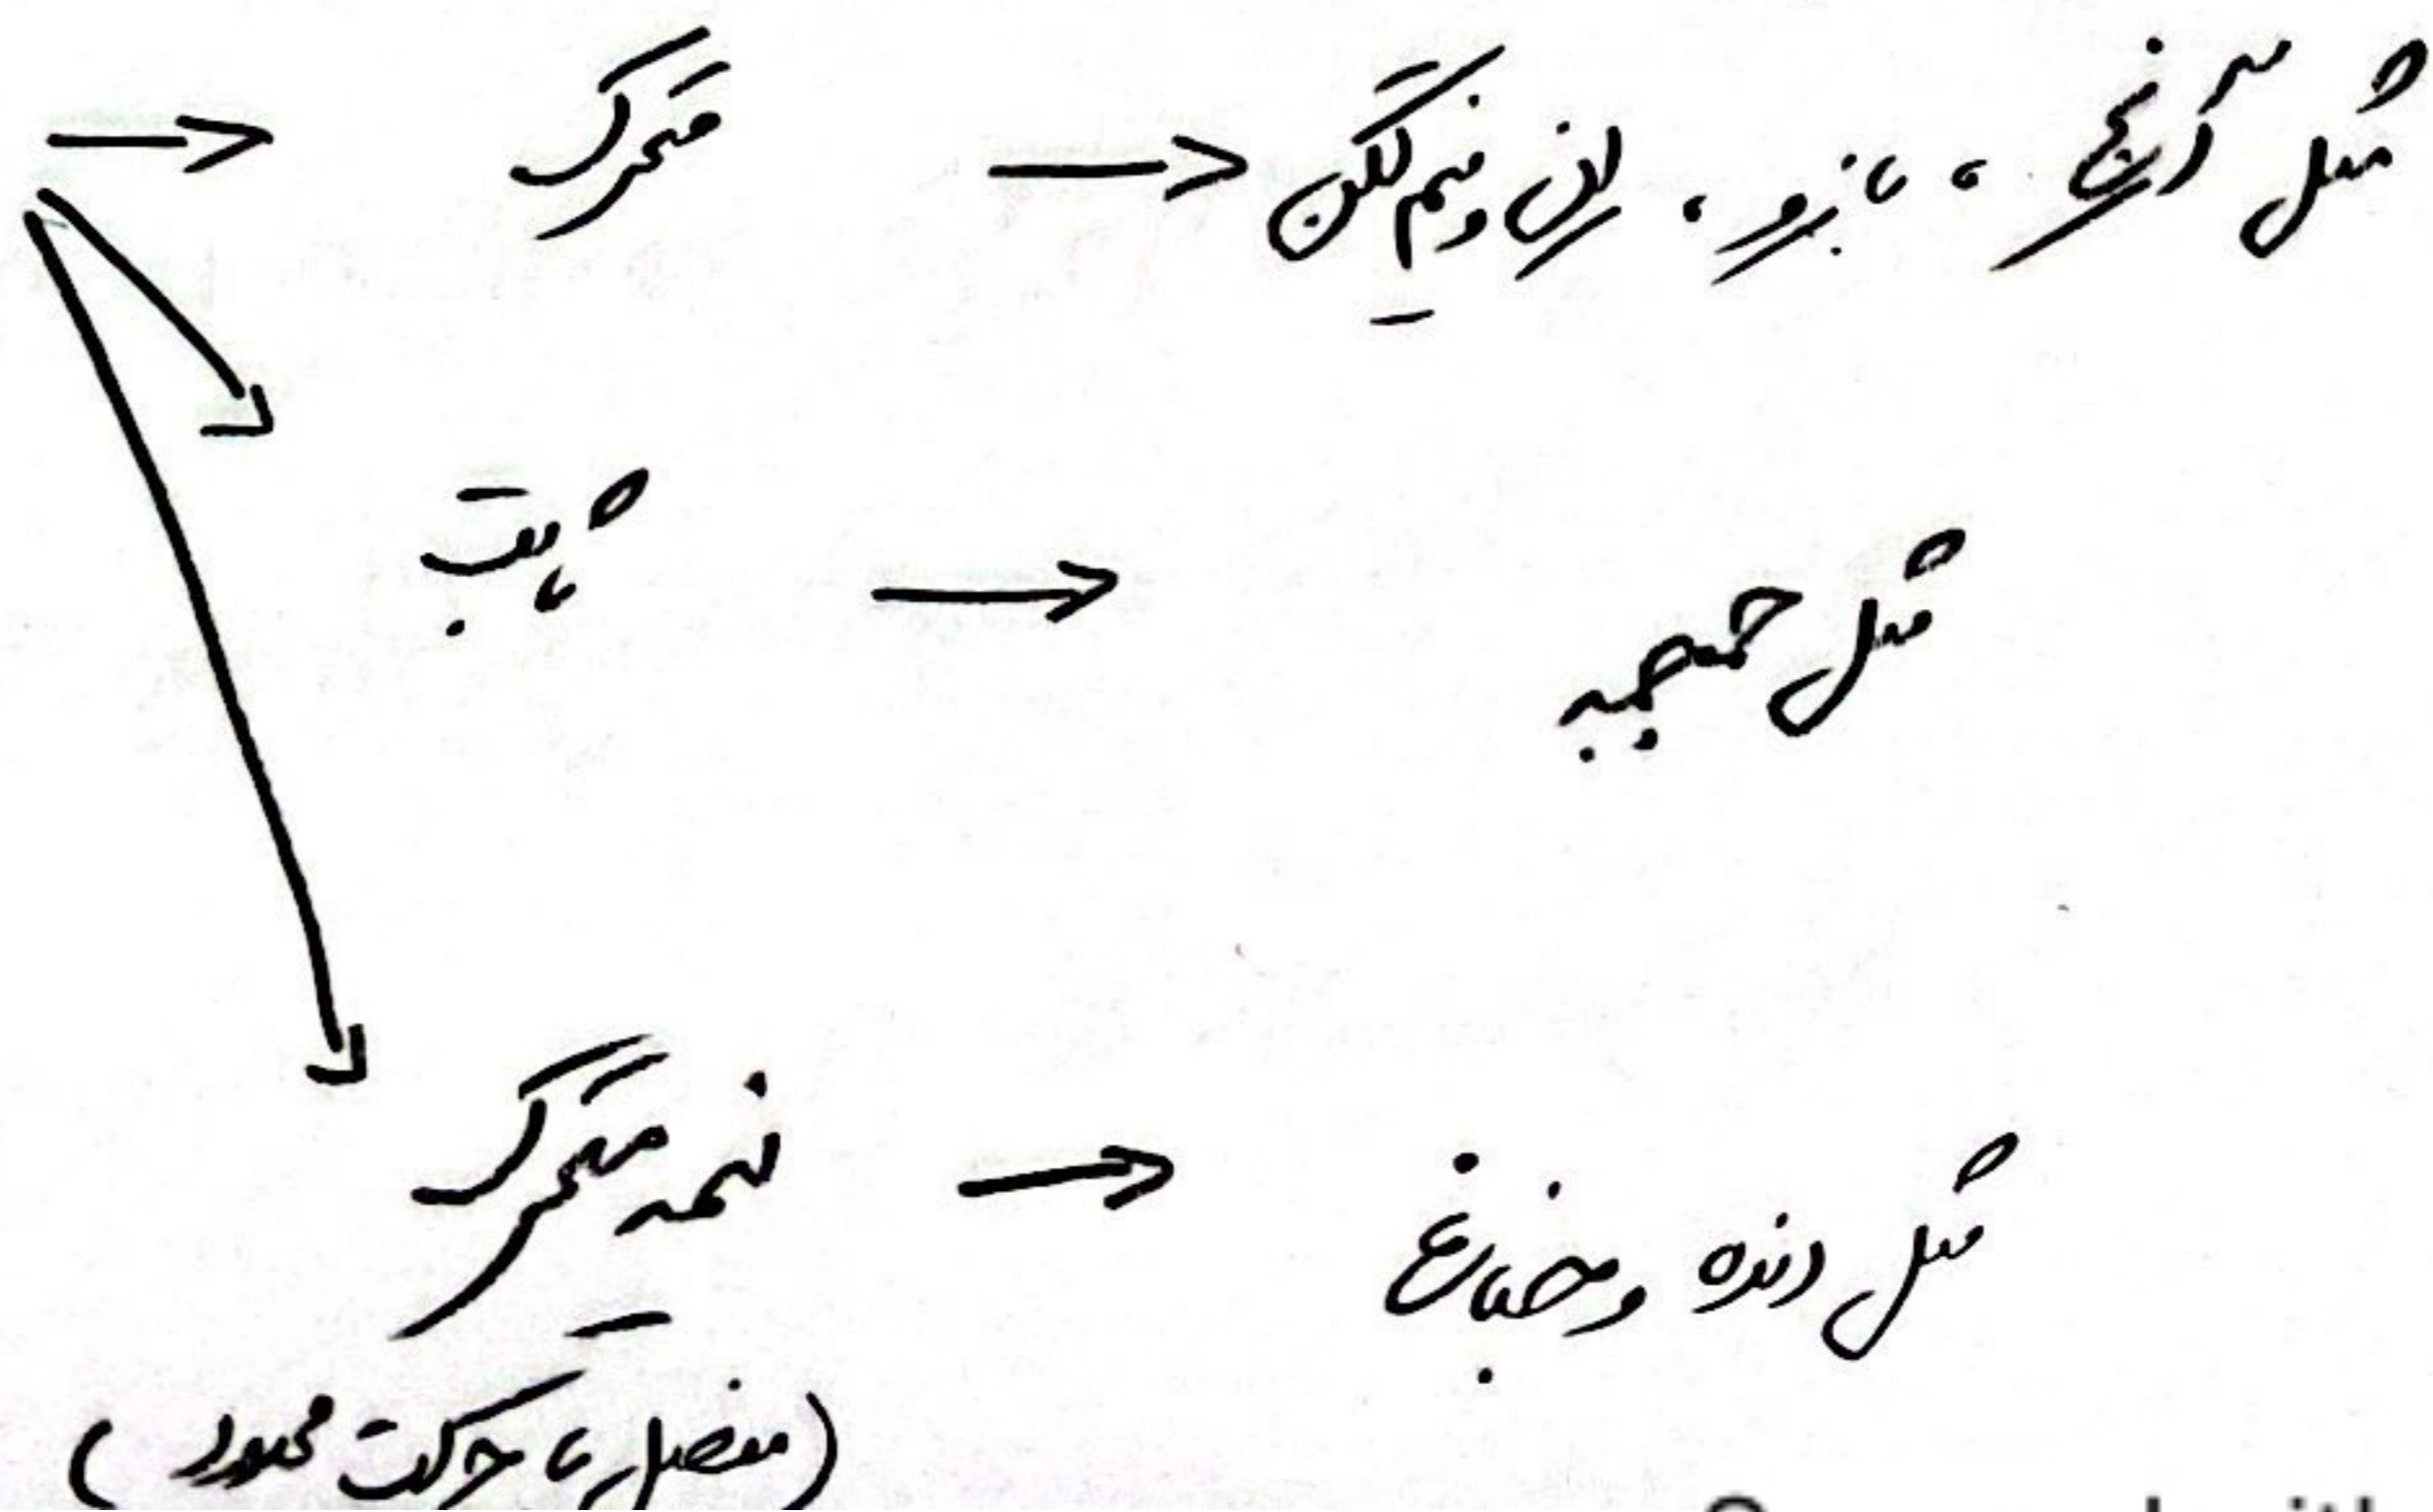 → متحرک → مثل آرنج ، بازو ، ران و نیم لگن
ثابت → مثل جمجمه
نیمه متحرک → مثل دنده و جناغ
(مفصل با حرکت محدود)